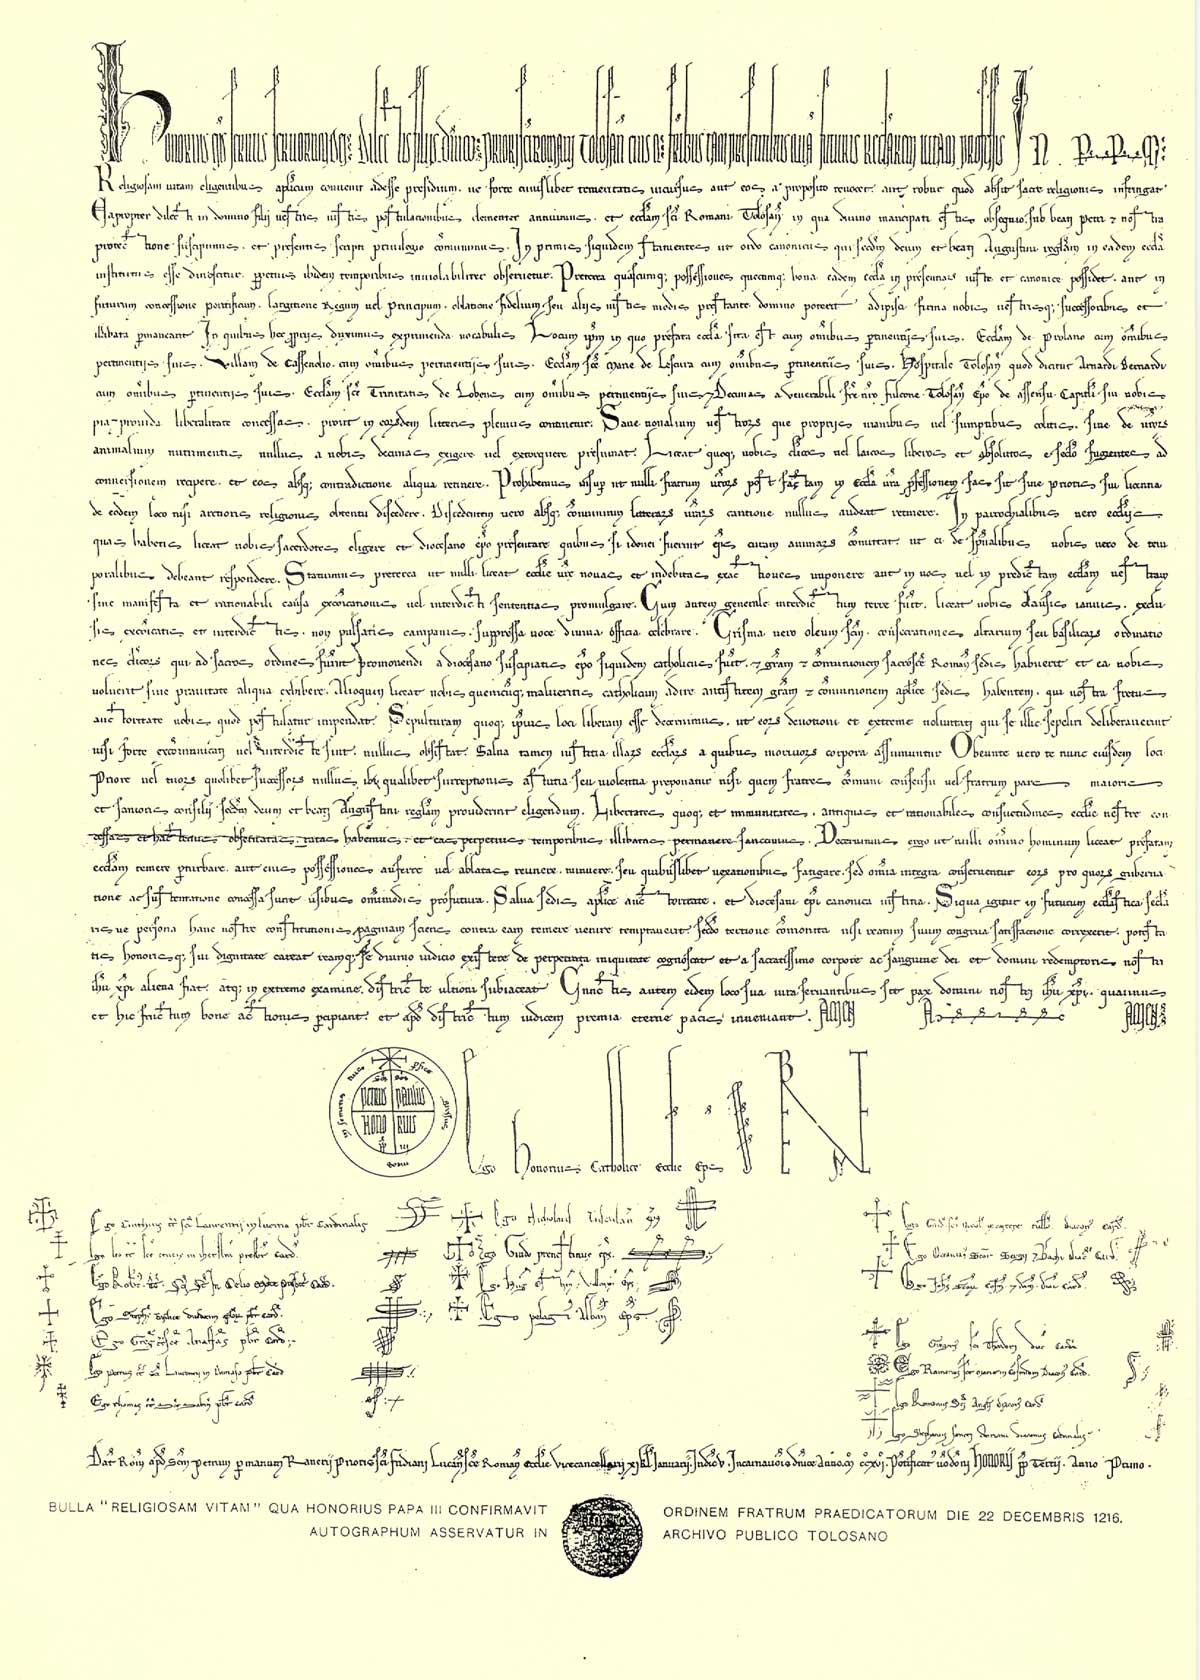 Honorius eps servus servorum dei Dilectis filiis Priori sci Romani Tolosan eius frībus tam presentibus quā futuris regularem vitam professis IN PPM
Religiosam vitam eligentibus aplicum convenit adesse presidium. ne forte cuiuslibet temeritatis incursus aut eos a proposito revocet. aut robur quod absit sacre religionis infringat
Eapropter dilecti in domino filij vestris iustis postulationibus clementer annuimus. et ecclam sci Romani Tolosan in qua divino mancipati estis obsequio sub beati Petri et nostra
protectione suscipimus. et presentis scripti privilegio comunimus. In primis siquidem statuentes ut ordo canonicus qui scdm deum et beati Augustini reglam in eadem eccla
institutus esse dinoscitur. perpetuis ibidem temporibus inviolabiliter observetur. Preterea quascumq; possessiones quecumq; bona eadem eccla in presentiarum iuste et canonice possidet. aut in
futurum concessione pontificum. largitione Regum vel Principum. oblatione fidelium seu alijs iustis modis prestante domino poterit adipisci firma vobis vestrisq; successoribus et
illibata permaneant In quibus hec proprijs duximus exprimenda vocabulis Locum ipm in quo prefata eccla sita est cum omibus pertinentijs suis. Ecclam de Prolano cum omibus
pertinentijs suis. Villam de Cassenolio. cum omibus pertinentijs suis. Ecclam sce Marie de Lescura cum omibus pertinentijs suis. Hospitale Tolosan quod dicitur Arnardi Bernardi
cum omibus pertinentijs suis. Ecclam sce Trinitatis de Lobens cum omibus pertinentijs suis. Decimas a venerabili fre nro fulcone Tolosan Epo de assensu Capituli sui vobis
pia provida liberalitate concessas. prout in eorsdem litteris plenius continetur. Sane novalium vestrors que proprijs manibus vel sumptibus colitis. sive de vrors
animalium nutrimentis nullus a vobis decimas exigere vel extorquere presumat. Liceat quoq; vobis clicos vel laicos liberos et absolutos e seclo fugientes ad
conversionem recipere. et eos absq; contradictione aliqua retinere. Prohibemus insup ut nulli fratrum vrors post factam in eccla vra professionem fas sit sine prioris sui licentia
de eodem loco nisi arctioris religionis obtentu discedere. Discedentem vero absq; comunium litterars vrars cautione nullus audeat retinere. In parrochialibus vero ecclijs
quas habetis liceat vobis sacerdotes eligere et diocesano epo presentare quibus si idonei fuerint eps curam animars comittat. ut ei de spualibus vobis vero de tem
poralibus debeant respondere. Statuimus preterea ut nulli liceat ecclie vre novas et indebitas exactiones imponere aut in vos vel in predictam ecclam vestram
sine manifesta et rationabili causa excoicationis vel interdicti sententias promulgare. Cum autem generale interdictum terre fuerit. liceat vobis clausis ianuis. exclu
sis excoicatis et interdictis. non pulsatis campanis. suppressa voce divina officia celebrare. Crisma vero oleum scm. consecrationes altarium seu basilicars ordinatio
nes clicors qui ad sacros ordines fuerint promovendi a diocesano suscipiatis epo siquidem catholicus fuerit. et gram et comunionem sacrosce Romane sedis habuerit et ea vobis
voluerit sine pravitate aliqua exhibere. Alioquin liceat vobis quemcumq; malueritis catholicum adire antistitem gram et comunionem aplice sedis habentem. qui nostra fretus
auctoritate vobis quod postulatur impendat. Sepulturam quoq; ipsius loci liberam esse decernimus. ut eors devotioni et extreme voluntati qui se illic sepeliri deliberaverint
nisi forte excoicati vel interdicti sint. nullus obsistat. Salva tamen iustitia illars ecclars a quibus mortuors corpora assumuntur Obeunte vero te nunc eiusdem loci
Priore vel tuors quolibet successors nullus ibi qualibet surreptionis astutia seu violentia preponatur nisi quem fratres comuni consensu vel fratrum pars maioris
et sanioris consilij scdm deum et beati Augustini reglam providerint eligendum. Libertates quoq; et immunitates. antiquas et rationabiles consuetudines ecclie vestre con
cessas et hactenus observatas ratas habemus. et eas perpetuis temporibus illibatas permanere sancimus. Decernimus ergo ut nulli omino hominum liceat prefatam
ecclam temere perturbare. aut eius possessiones auferre vel ablatas retinere. minuere. seu quibuslibet vexationibus fatigare. sed omia integra conserventur eors pro quors guberna
tione ac sustentatione concessa sunt usibus omimodis profutura. Salva sedis aplice auctoritate. et diocesani epi canonica iustitia. Siqua igitur in futurum ecclastica secla
ris ve persona hanc nostre constitutionis paginam sciens contra eam temere venire temptaverit. secdo tertiove comonita nisi reatum suum congrua satisfactione correxerit. potesta
tis honorisq; sui dignitate careat reamq; se divino iudicio existere de perpetrata iniquitate cognoscat et a sacratissimo corpore ac sanguine dei et domini redemptoris nostri
ihu xpi aliena fiat. atq; in extremo examine. districte ultioni subiaceat Cunctis autem eidem loco sua iura servantibus sit pax domini nostri ihu xpi. quatinus
et hic fructum bone actionis percipiant. et apd districtum iudicem premia eterne pacis inveniant. AMEN AMEN AMEN
Scs Petrus Scs Paulus Honorius pp III
Ego Honorius Catholice Ecclie Eps
Ego Cinthius tt sci Laurentii in lucina pbr Cardinalis
Ego Nicholaus Tusculan eps
Ego leo tt sce crucis in Hierlm presbr Card.
Ego Guido prenestinus eps.
Ego Octavius Card.
Ego Robt. tt. Card.
Ego Pelagi Alban Eps
Ego Gregor Card.
Ego petrus tt sci Laurentii in Damaso pbr Card
Ego Rainerius sce marie in Cosmidin Diacon Card.
Ego thomas tt pbr Card
Ego Romanus Sci Angli diacon Card
Ego Stephanus Cardinalis
Dat Rom apd Scm Petrum p manum Ranerii Prioris sci Fridiani Lucan sce Roman Ecclie vicecancellarii xi kl Januarii. Indict v. Incarnationis dnice anno m ccxvi. Pontificat vo domni Honorij pp Tertii. Anno Primo.
BULLA “RELIGIOSAM VITAM” QUA HONORIUS PAPA III CONFIRMAVIT ORDINEM FRATRUM PRAEDICATORUM DIE 22 DECEMBRIS 1216.
AUTOGRAPHUM ASSERVATUR IN ARCHIVO PUBLICO TOLOSANO